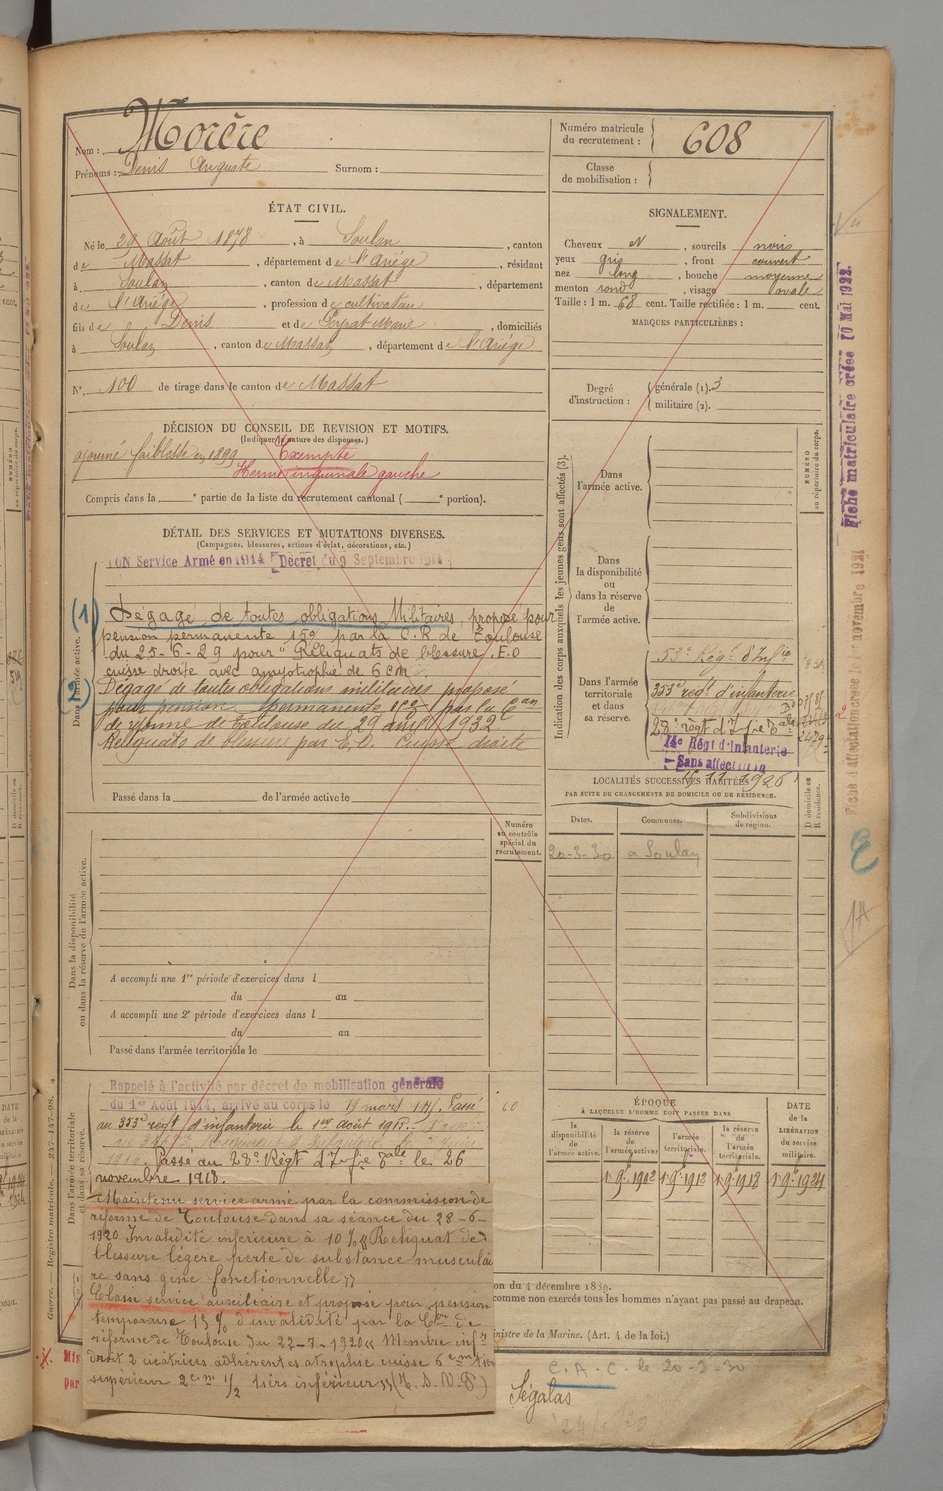 Nom : Morère
Prénoms : Denis Auguste Surnom :
ÉTAT CIVIL.
Né le 29 Août 1878, à Soulan, canton
de Massat, département de l'Ariège, résidant
à Soulan, canton de Massat, département
de l'Ariège, profession de cultivateur
fils de Denis et de Marie, domiciliés
à Soulan, canton de Massat, département de l'Ariège
N° 100 de tirage dans le canton de Massat
DÉCISION DU CONSEIL DE REVISION ET MOTIFS.
(Indiquer la nature des dispenses.)
ajourné faiblesse en 1899 Exempté
Hernie inguinale gauche
Compris dans la e partie de la liste du recrutement cantonal ( e portion).
DÉTAIL DES SERVICES ET MUTATIONS DIVERSES.
(Campagnes, blessures, actions d'éclat, décorations, etc.)
Service Armé en 1914 Décret du 9 Septembre 1914
(1) Dégagé de toutes obligations Militaires, proposé pour
pension permanente 15% par la C.R de Toulouse
du 25-6-29 pour "Reliquats de blessure E.O
cuisse droite avec amyotrophie de 6 cm
(2) Dégagé de toutes obligations militaires proposé
pour pension permanente par la Con
de réforme de Toulouse du 29 avril 1932
Reliquats de blessure par E.O. cuisse droite
Dans l'armée active.
Passé dans la de l'armée active le
Numéro
au contrôle
spécial du
recrutement.
Dans la disponibilité
ou dans la réserve de l'armée active.
A accompli une 1re période d'exercices dans l
du au
A accompli une 2e période d'exercices dans l
du au
Passé dans l'armée territoriale le
Dans l'armée territoriale
et dans sa réserve.
Rappelé à l'activité par décret de mobilisation générale
du 1er Août 1914, arrivé au corps le 15 mars 1915. Passé
au 353e régt d'infanterie le 1er août 1915.
Passé au 28e Régt d'Infie Cale le 26
novembre 1918.
Maintenu service armé par la commission de
réforme de Toulouse dans sa séance du 28-6-
1920 Invalidité inférieure à 10% « Reliquat de
blessure légère perte de substance musculai
re sans gêne fonctionnelle »
Classé service auxiliaire et proposé pour pension
temporaire 15% d'invalidité par la Con de
réforme de Toulouse du 22-7-1920 « Membre infr
droit 2 cicatrices adhérentes atrophie cuisse 6 cm tiers
supérieur 2 cm 1/2 tiers inférieur » (E.D.V.P)
Mis
par
Guerre. — Registre matricule. — 247-147-98.
Numéro matricule
du recrutement : 608
Classe
de mobilisation :
SIGNALEMENT.
Cheveux N, sourcils noirs
yeux gris, front couvert
nez long, bouche moyenne
menton rond, visage ovale
Taille : 1 m. 68 cent. Taille rectifiée : 1 m. cent.
MARQUES PARTICULIÈRES :
Degré
d'instruction :
générale (1). 3
militaire (2).
Indication des corps auxquels les jeunes gens sont affectés (3).
NUMÉRO
au répertoire du corps.
Dans
l'armée active.
Dans
la disponibilité
ou
dans la réserve
de
l'armée active.
Dans l'armée
territoriale
et dans
sa réserve.
53e Régt d'Infie
353e régt d'infanterie
28e régt d'Infie Cale
14e Régt d'Infanterie
Sans affectation
11 1926
LOCALITÉS SUCCESSIVES HABITÉES
PAR SUITE DE CHANGEMENTS DE DOMICILE OU DE RÉSIDENCE.
D domicile ou
R résidence.
Dates. Communes. Subdivisions
de région.
20-3-30 a Soulan
ÉPOQUE
À LAQUELLE L'HOMME DOIT PASSER DANS
DATE
de la
LIBÉRATION
du service
militaire.
la
disponibilité
de
l'armée active.
la réserve
de
l'armée active.
l'armée
territoriale.
la réserve
de
l'armée
territoriale.
1er 9bre 1902 1er 9bre 1912 1er 9bre 1918 1er 9bre 1924
on du 4 décembre 1889.
comme non exercés tous les hommes n'ayant pas passé au drapeau.
inistre de la Marine. (Art. 4 de la loi.)
C.A.C. le 20-3-30
Ségalas
Fiche matriculaire créée 10 Mai 1922.
Fiche d'affectation créée le novembre 1921